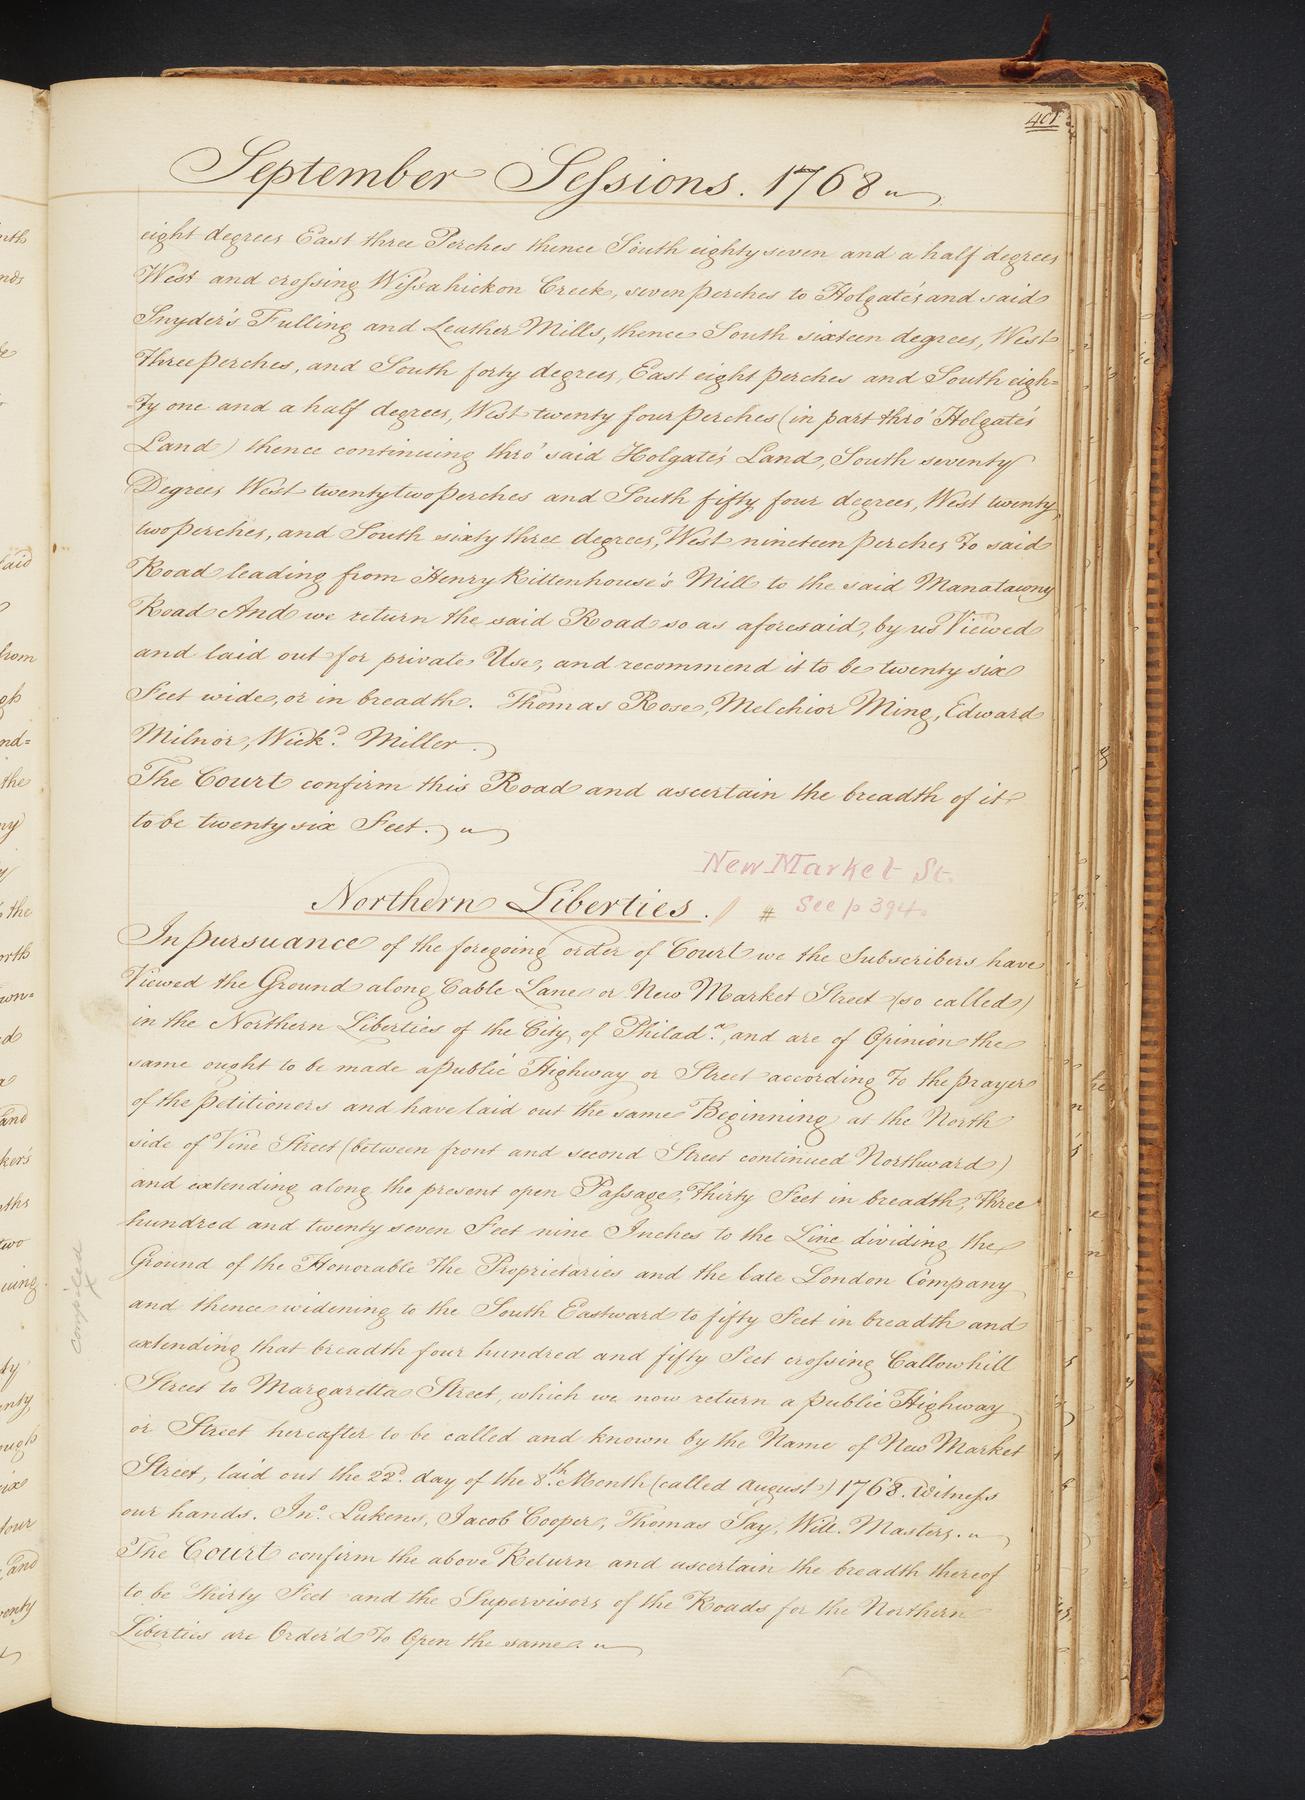 401
September Sessions. 1768
eight degrees East three Perches thence South eighty seven and a half degrees
West and crossing Wissahickon Creek, seven perches to Holgate's and said
Snyder's Fulling and Leather Mills, thence South sixteen degrees, West
three perches, and South forty degrees, East eight perches and South eigh=
=ty one and a half degrees, West twenty four perches (in part thro' Holgate's
Land) thence continuing thro' said Holgate's Land, South seventy
Degrees West twenty two perches and South fifty four degrees, West twenty
two perches, and South sixty three degrees, West nineteen perches To said
Road leading from Henry Rittenhouse's Mill to the said Manatawny
Road And we return the said Road so as aforesaid, by us Viewed
and laid out for private Use, and recommend it to be twenty six
Feet wide, or in breadth. Thomas Rose, Melchior Ming, Edward
Milnor, Wickd. Miller.
The Court confirm this Road and ascertain the breadth of it
to be twenty six Feet.
New Market St.
Northern Liberties. # See p 394.
In pursuance of the foregoing order of Court we the Subscribers have
Viewed the Ground along Cable Lane or New Market Street (so called)
in the Northern Liberties of the City of Philada. and are of Opinion the
same ought to be made a public Highway or Street according To the prayer
of the petitioners and have laid out the same Beginning at the North
side of Vine Street (between front and second Street continued Northward)
and extending along the present open Passage, Thirty Feet in breadth, three
hundred and twenty seven Feet nine Inches to the Line dividing the
Ground of the Honorable The Proprietaries and the late London Company
and thence widening to the South Eastward to fifty Feet in breadth and
extending that breadth four hundred and fifty Feet crossing Callowhill
Street to Margaretta Street, which we now return a public Highway
or Street hereafter to be called and known by the Name of New Market
Street, laid out the 22d. day of the 8th. Month (called August) 1768. Witness
our hands. Jno. Lukens, Jacob Cooper, Thomas Say, Will. Masters.
The Court confirm the above Return and ascertain the breadth thereof
to be Thirty Feet and the Supervisors of the Roads for the Northern
Liberties are Order'd To Open the same.
compiled